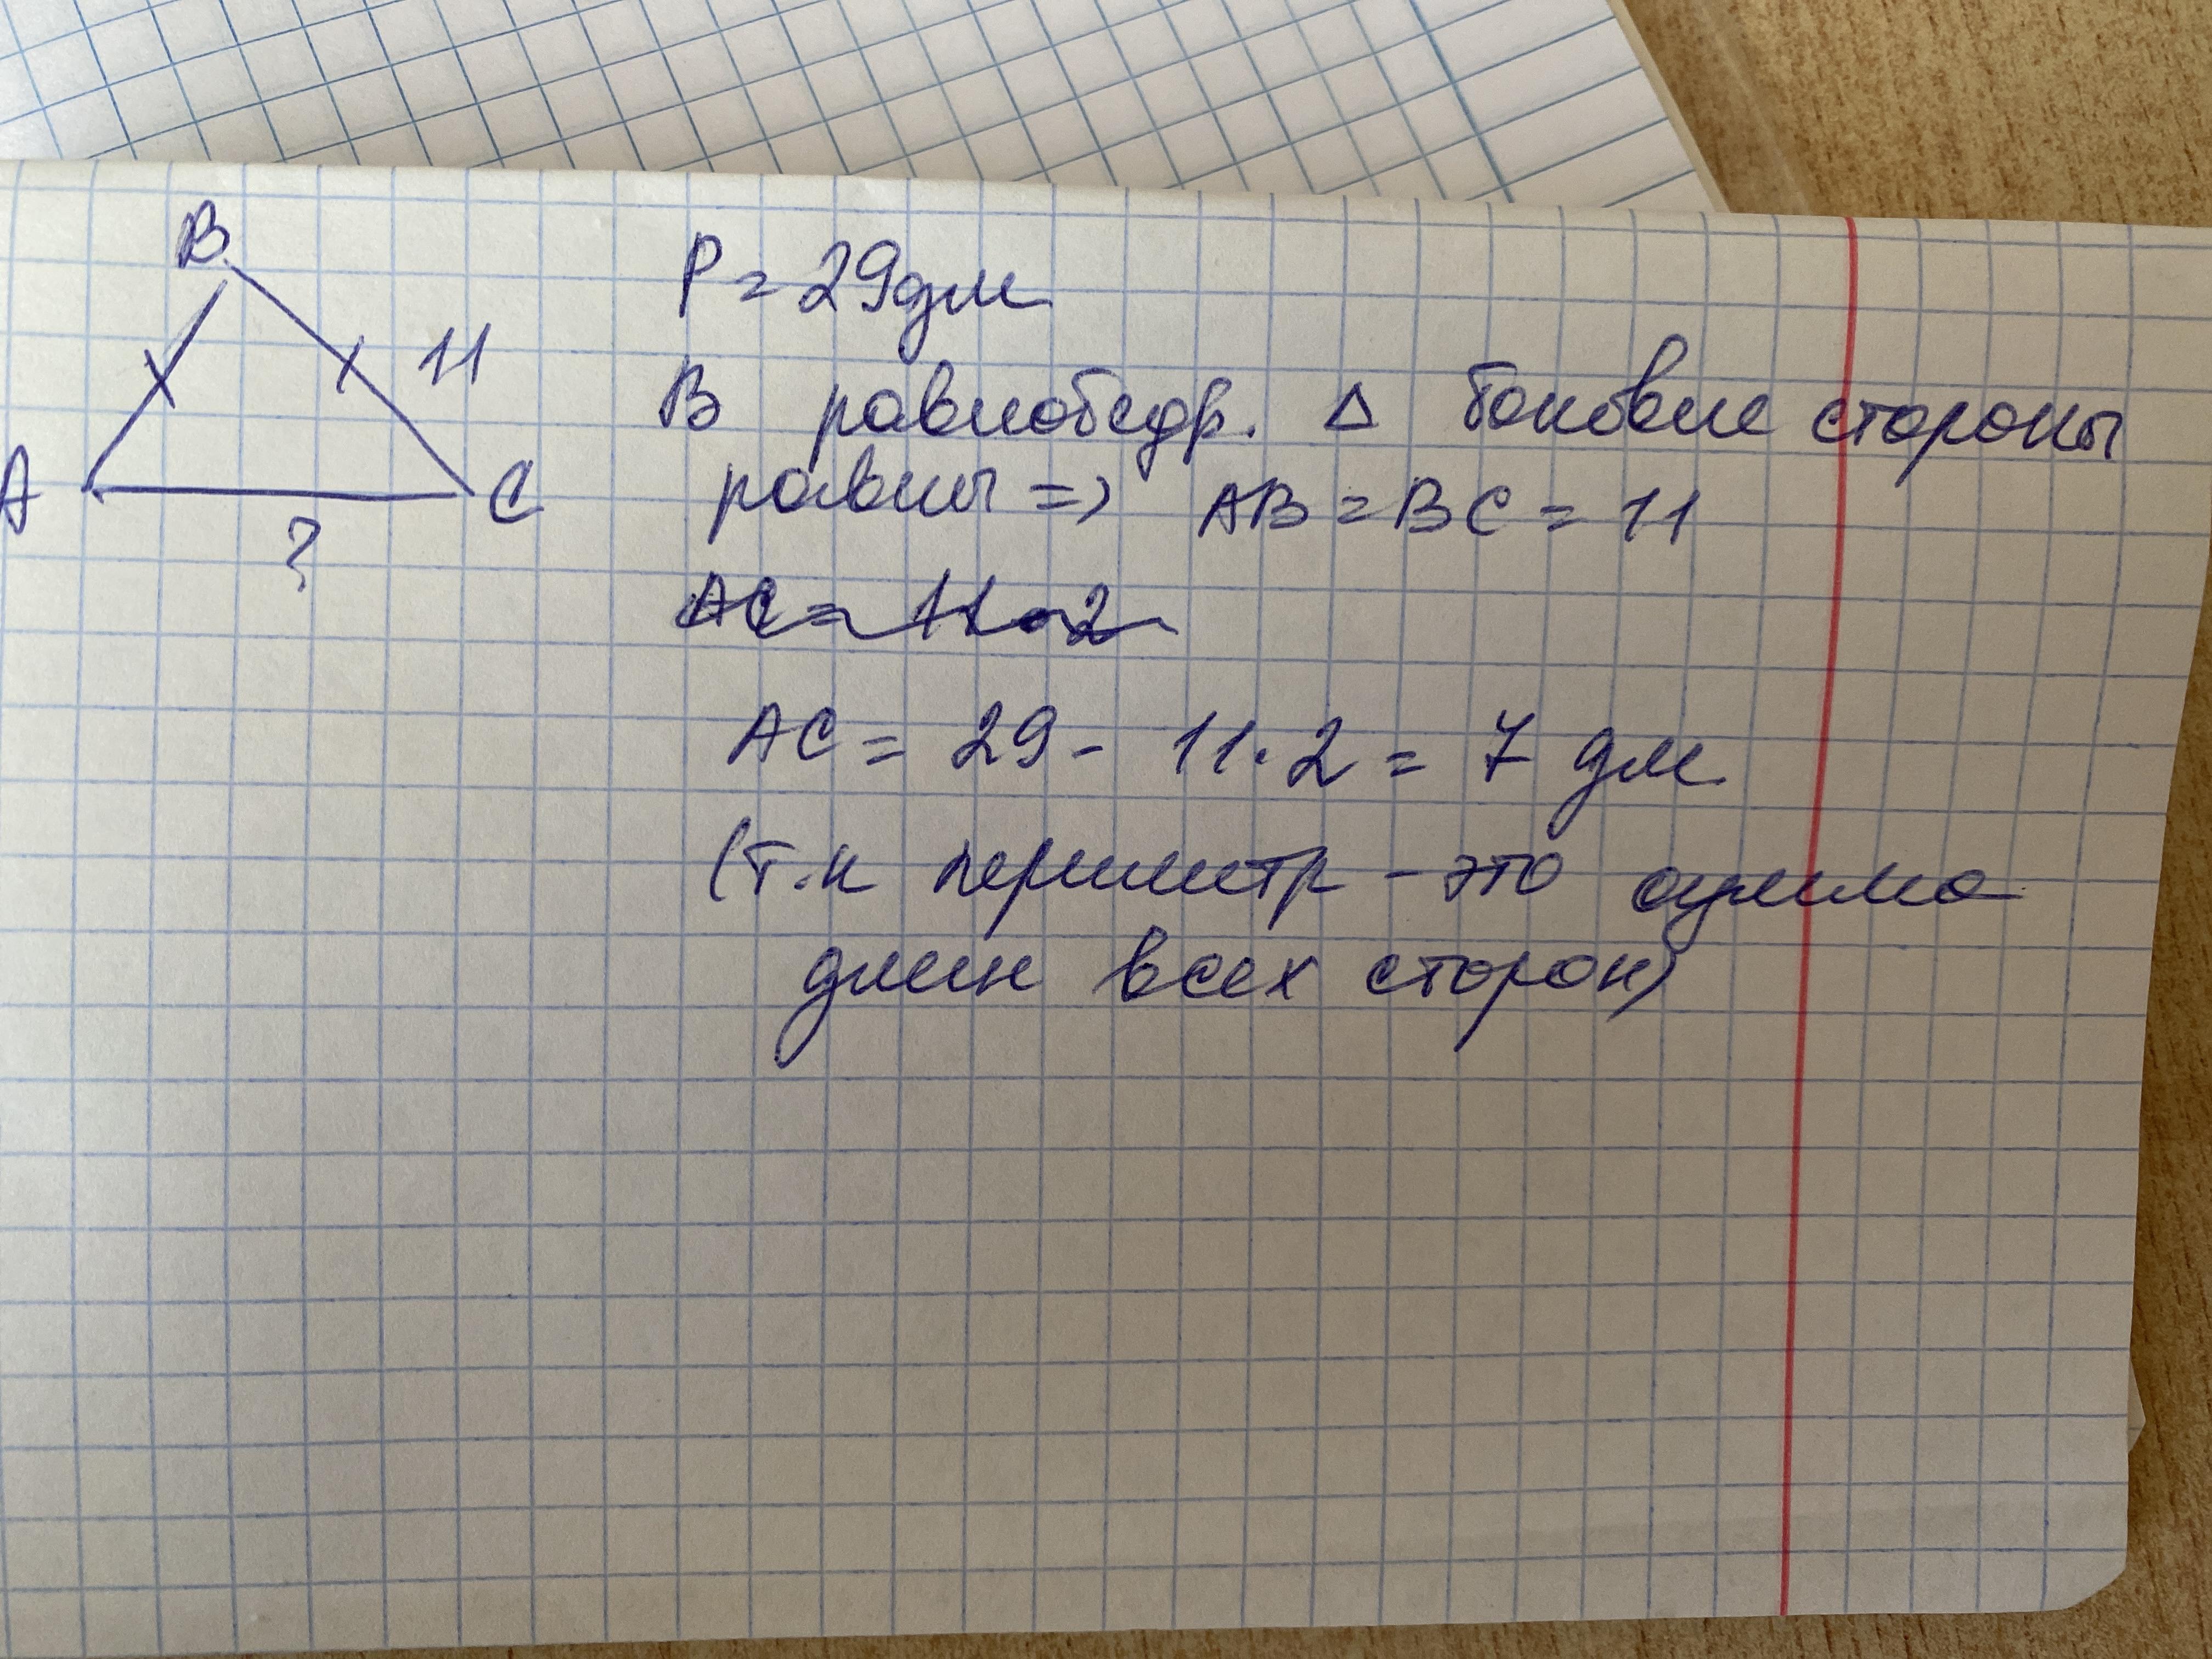 B
11
A
C
?
P = 29дм
В равнобедр. Δ боковые стороны
равны => AB = BC = 11
AC = 11 · 2
AC = 29 - 11 · 2 = 7 дм
(т.к периметр - это сумма
длин всех сторон)